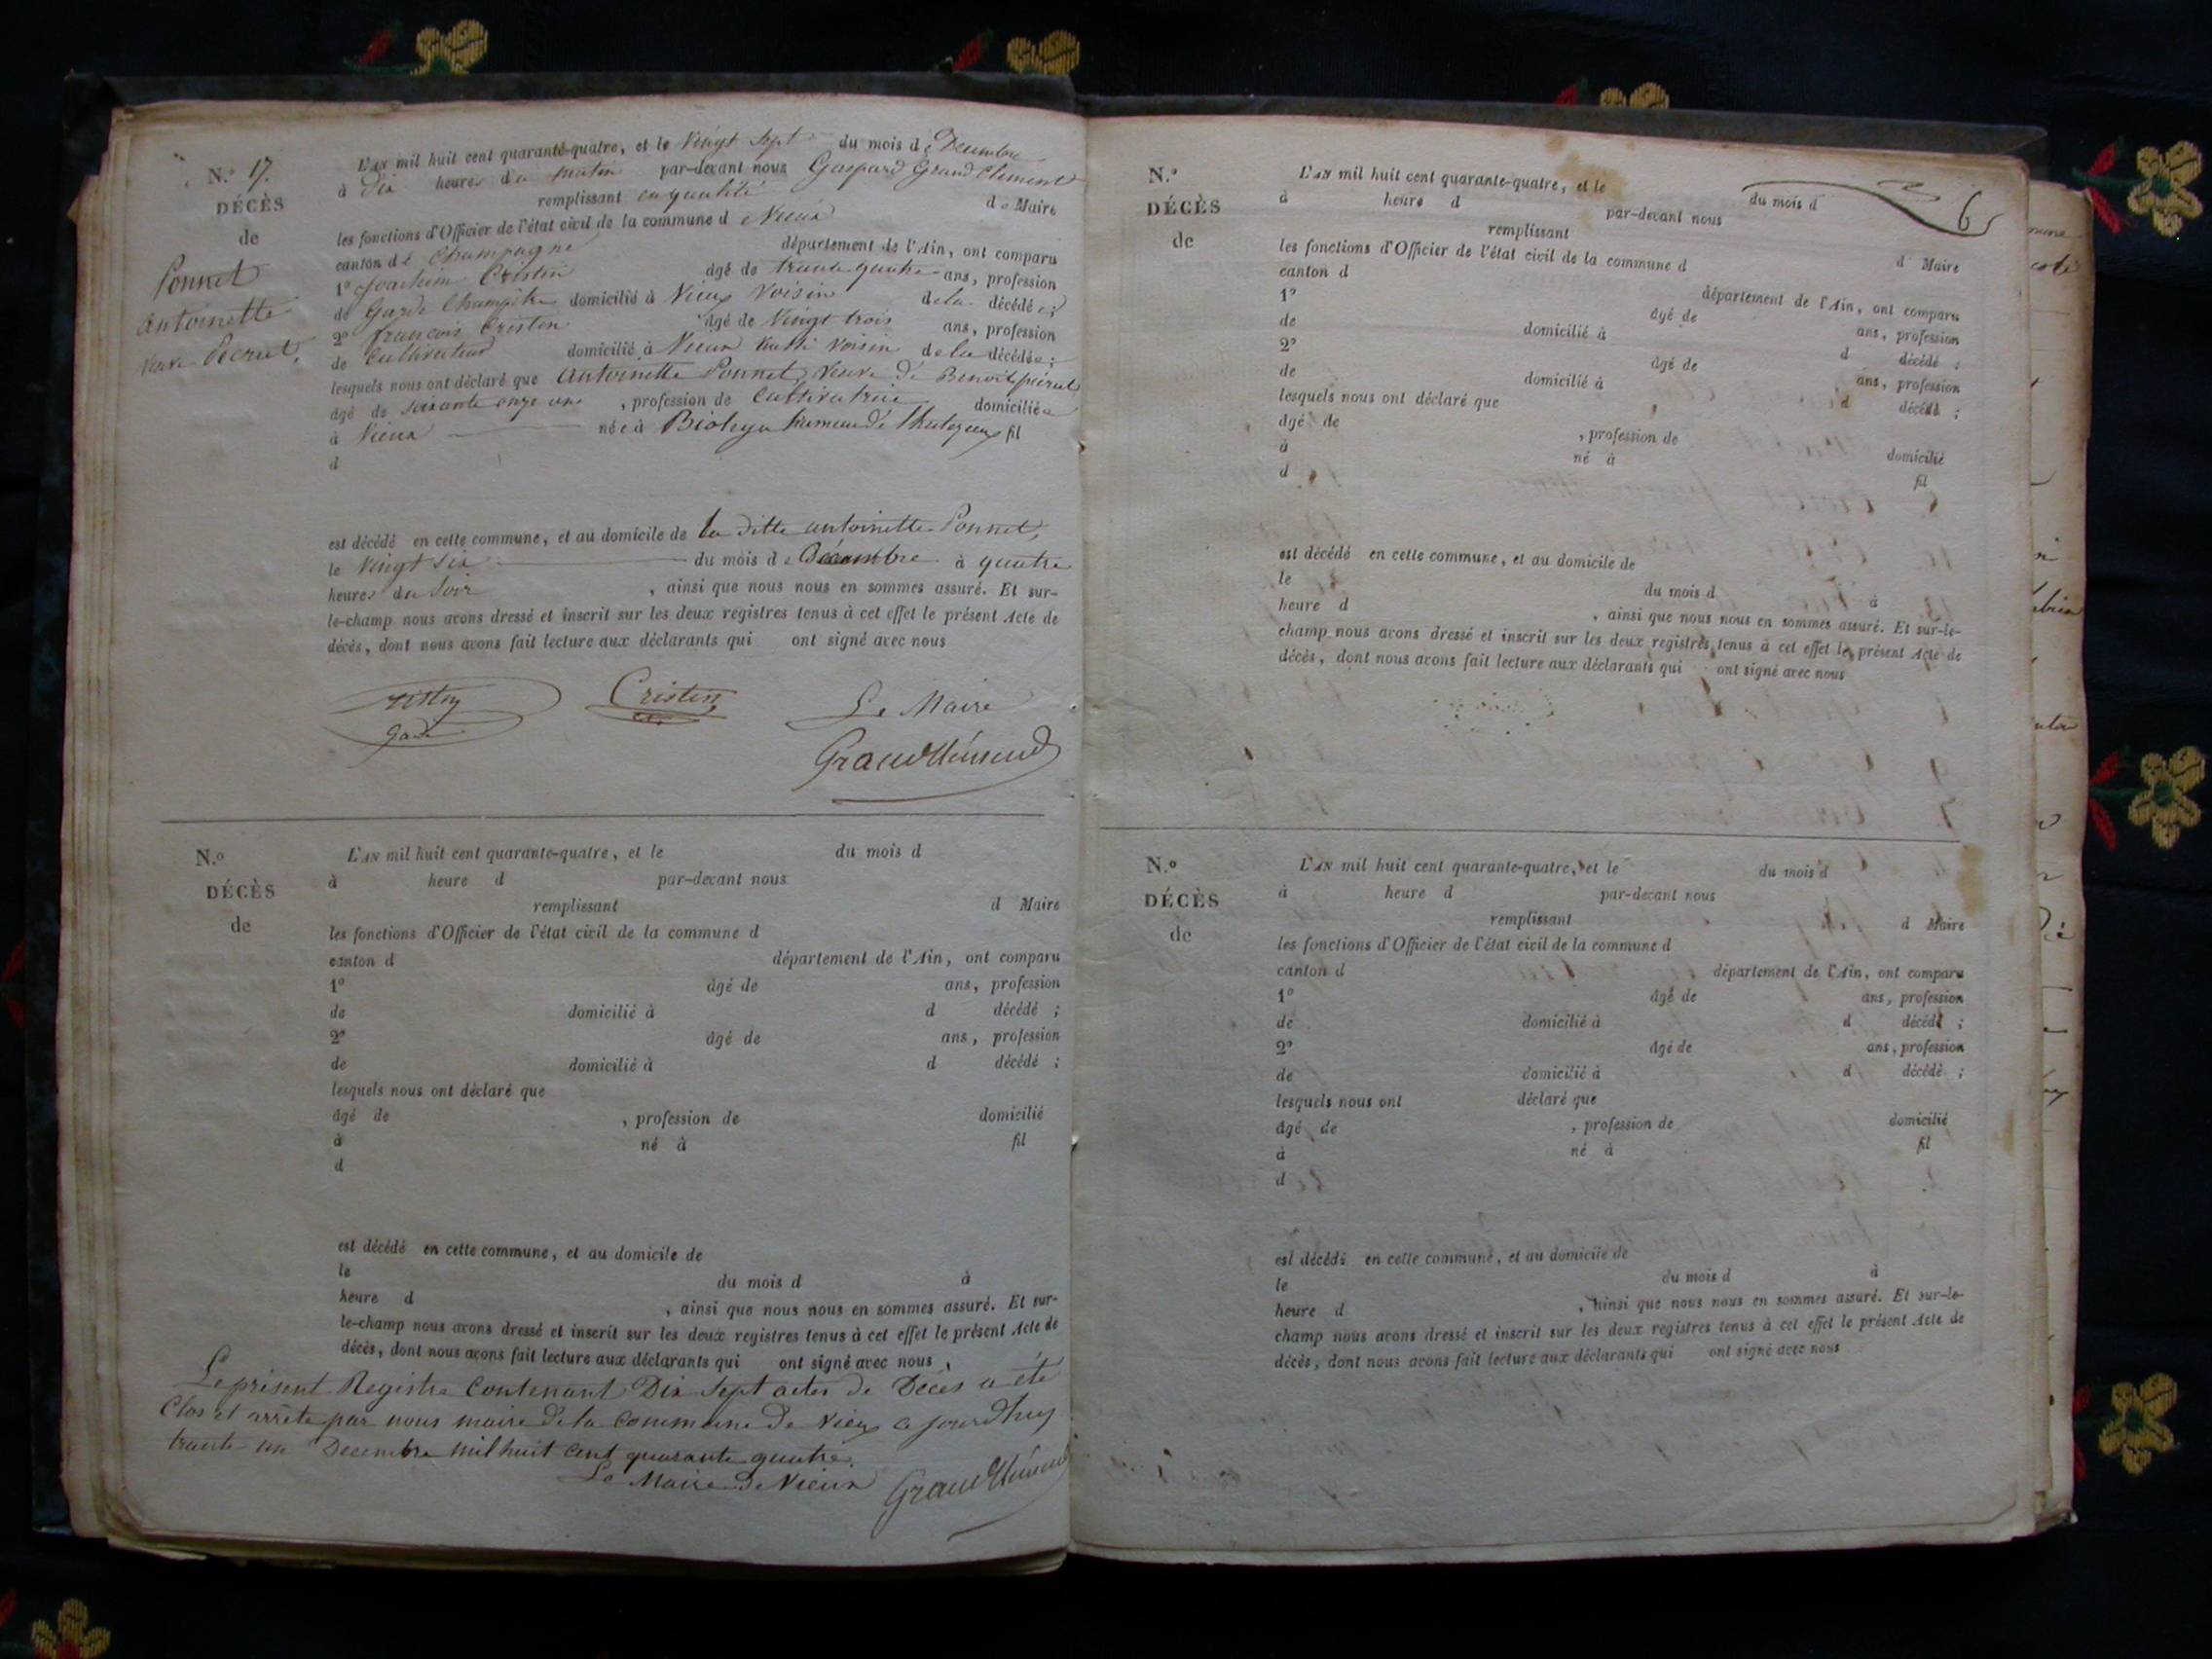 N.º 17.
DÉCÈS
de
Ponnet
Antoinette
veuve Pecrut,
L'AN mil huit cent quarante-quatre, et le Vingt Sept du mois de Décembre
à Dix heures du matin par-devant nous Gaspard Grand Clément
remplissant en qualité de Maire
les fonctions d'Officier de l'état civil de la commune de Vieux
canton de Champagne département de l'Ain, ont comparu
1º Joachim Cristin âgé de trente quatre ans, profession
de Garde Champêtre domicilié à Vieux Voisin de la décédée;
2º françois Cristin âgé de Vingt trois ans, profession
de Cultivateur domicilié à Vieux aussi voisin de la décédée;
lesquels nous ont déclaré que Antoinette Ponnet, veuve de Benoit
âgé de soixante onze ans, profession de Cultivatrice domiciliée
à Vieux née à Bioleya hameau de fil
d
est décédé en cette commune, et au domicile de la ditte antoinette Ponnet,
le Vingt Six du mois de Décembre à quatre
heures du Soir, ainsi que nous nous en sommes assuré. Et sur-
le-champ nous avons dressé et inscrit sur les deux registres tenus à cet effet le présent Acte de
décès, dont nous avons fait lecture aux déclarants qui ont signé avec nous
Cristin
Le Maire
Garde
Grandclément
N.º
DÉCÈS
de
L'AN mil huit cent quarante-quatre, et le du mois d
à heure d par-devant nous
remplissant d Maire
les fonctions d'Officier de l'état civil de la commune d
canton d département de l'Ain, ont comparu
1º âgé de ans, profession
de domicilié à d décédé ;
2º âgé de ans, profession
de domicilié à d décédé ;
lesquels nous ont déclaré que
âgé de , profession de domicilié
à né à fil
d
est décédé en cette commune, et au domicile de
le du mois d à
heure d , ainsi que nous nous en sommes assuré. Et sur-
le-champ nous avons dressé et inscrit sur les deux registres tenus à cet effet le présent Acte de
décès, dont nous avons fait lecture aux déclarants qui ont signé avec nous,
Le présent Registre Contenant Dix Sept actes de Décès a été
Clos et arrêté par nous maire de la Commune de Vieux a jourdhuy
trente un Decembre mil huit cent quarante quatre.
Le Maire de Vieux Grandclément
6
N.º
DÉCÈS
de
L'AN mil huit cent quarante-quatre, et le du mois d
à heure d par-devant nous
remplissant d Maire
les fonctions d'Officier de l'état civil de la commune d
canton d département de l'Ain, ont comparu
1º âgé de ans, profession
de domicilié à d décédé ;
2º âgé de ans, profession
de domicilié à d décédé ;
lesquels nous ont déclaré que
âgé de , profession de domicilié
à né à fil
d
est décédé en cette commune, et au domicile de
le du mois d à
heure d , ainsi que nous nous en sommes assuré. Et sur-le-
champ nous avons dressé et inscrit sur les deux registres tenus à cet effet le présent Acte de
décès, dont nous avons fait lecture aux déclarants qui ont signé avec nous
N.º
DÉCÈS
de
L'AN mil huit cent quarante-quatre, et le du mois d
à heure d par-devant nous
remplissant d Maire
les fonctions d'Officier de l'état civil de la commune d
canton d département de l'Ain, ont comparu
1º âgé de ans, profession
de domicilié à d décédé ;
2º âgé de ans, profession
de domicilié à d décédé ;
lesquels nous ont déclaré que
âgé de , profession de domicilié
à né à fil
d
est décédé en cette commune, et au domicile de
le du mois d à
heure d , ainsi que nous nous en sommes assuré. Et sur-le-
champ nous avons dressé et inscrit sur les deux registres tenus à cet effet le présent Acte de
décès, dont nous avons fait lecture aux déclarants qui ont signé avec nous